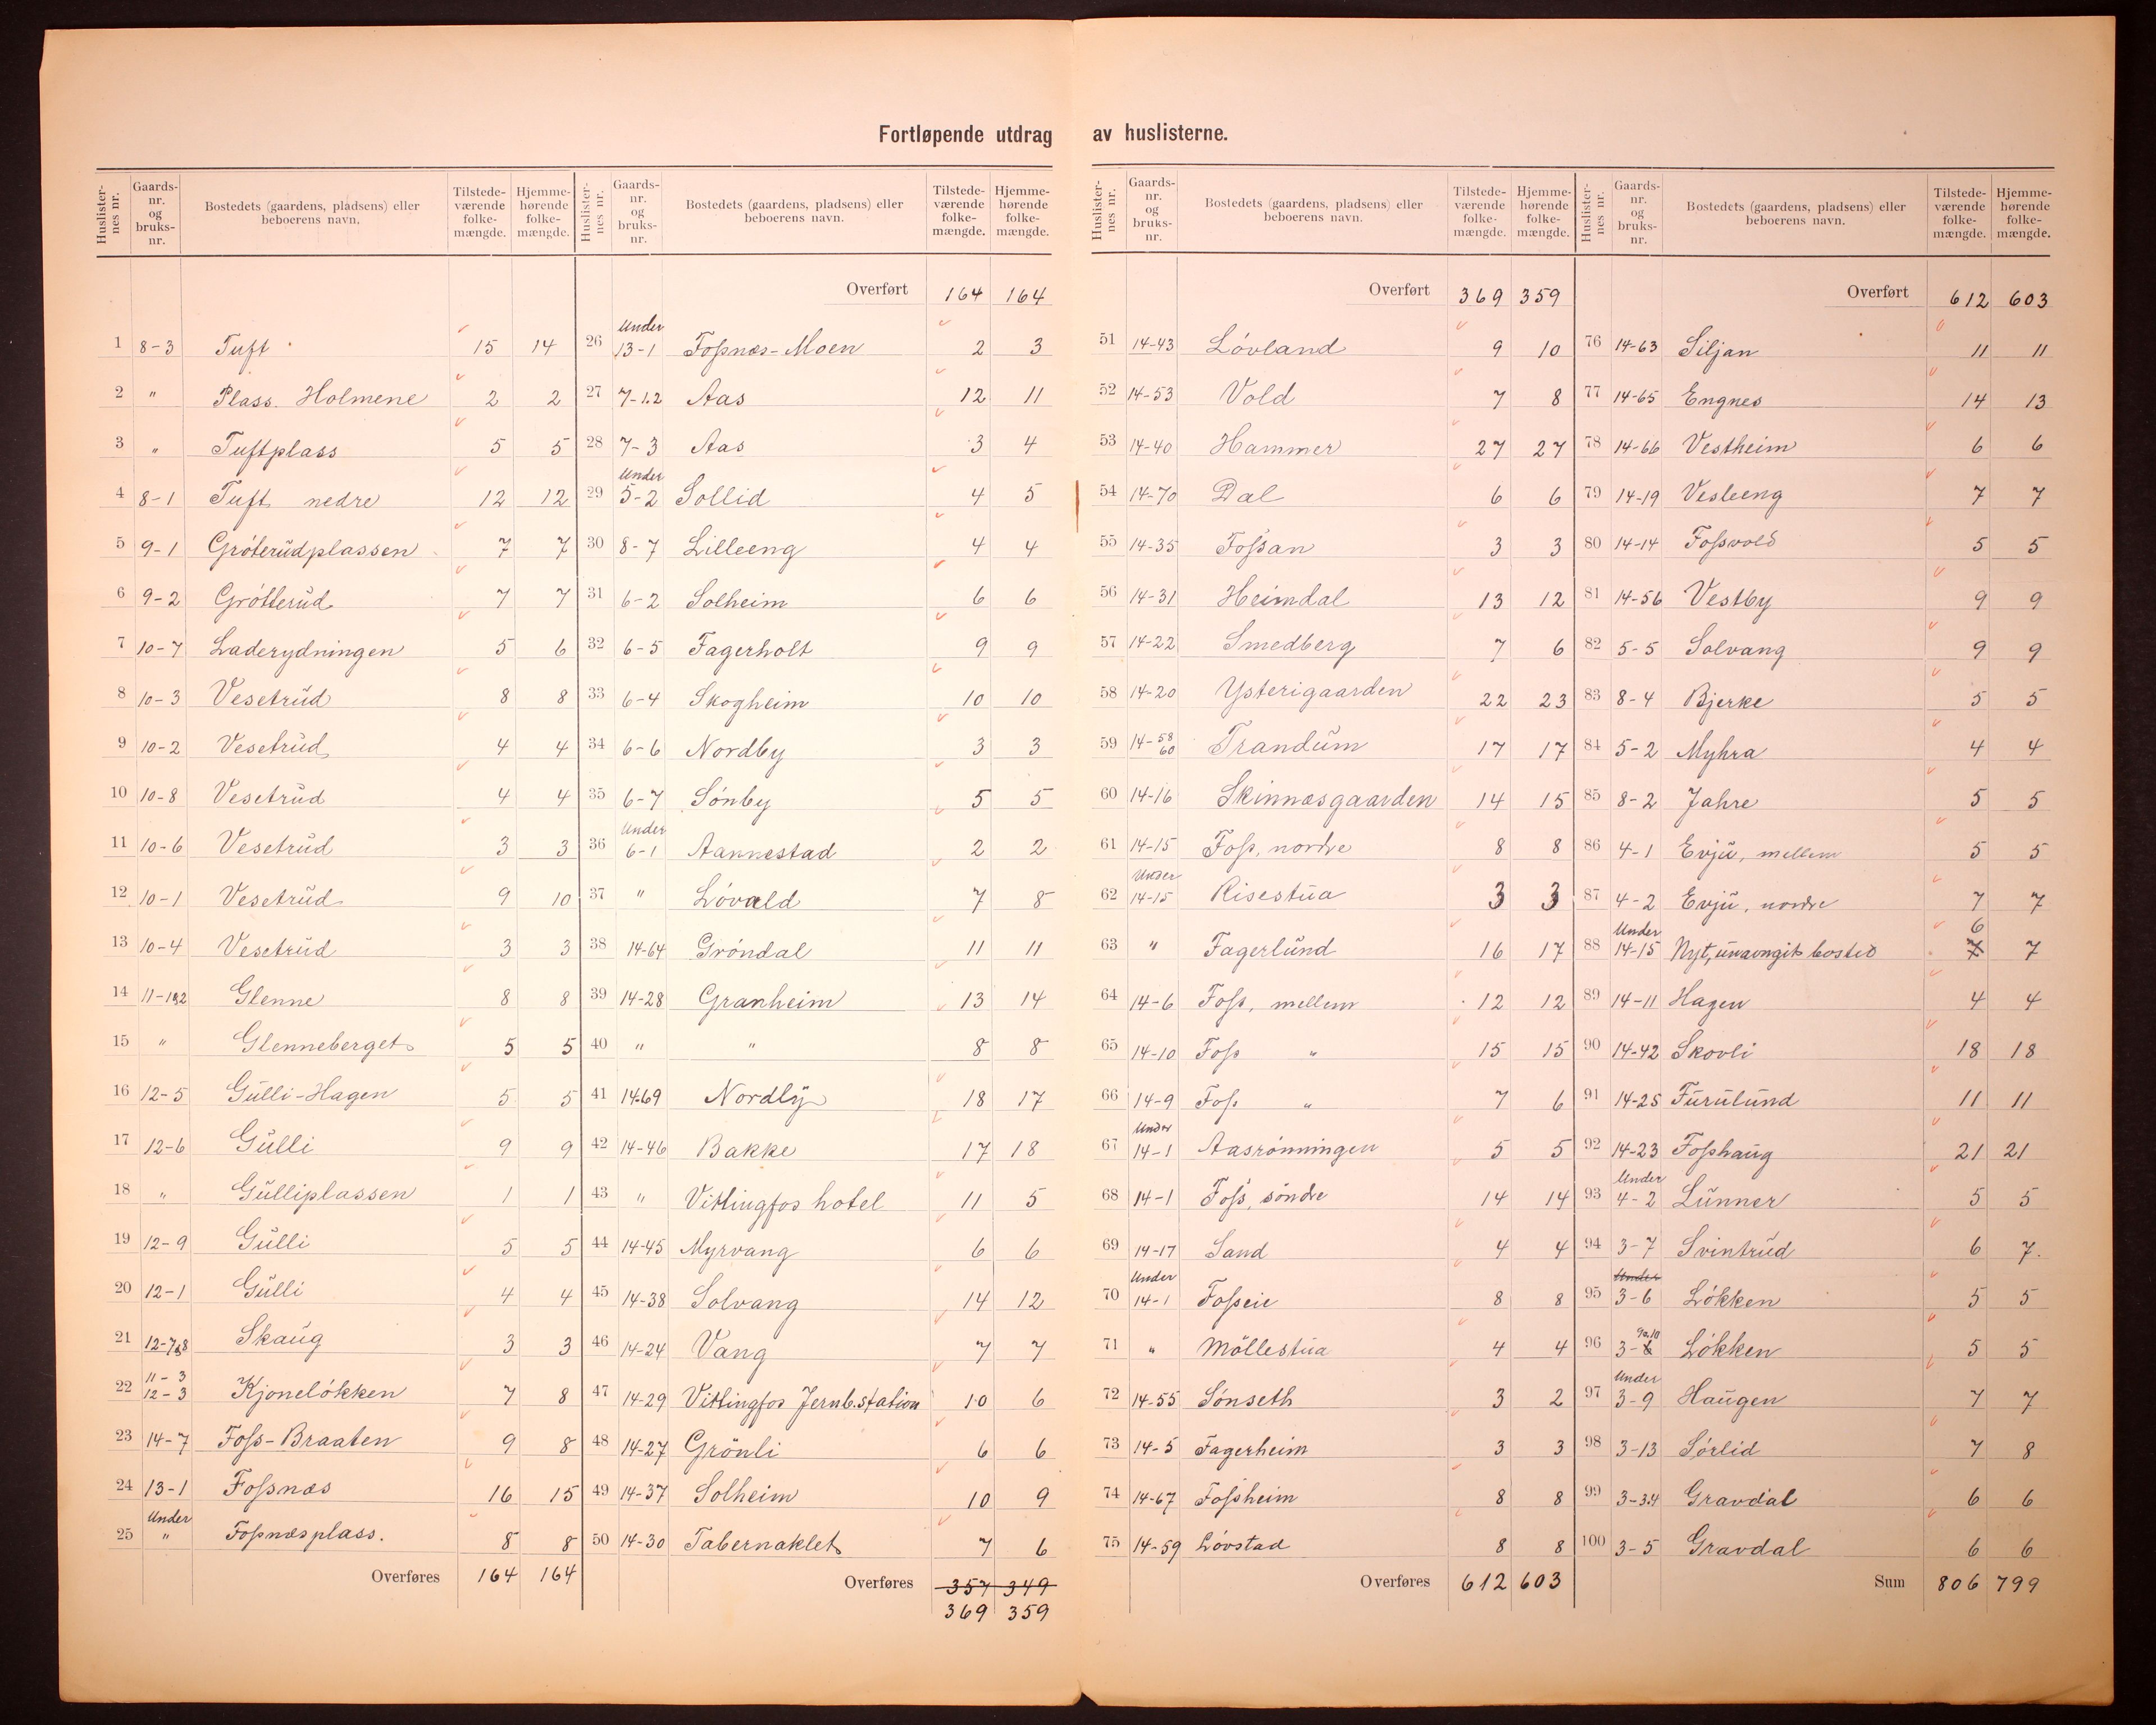 Fortløpende utdrag av huslisterne.
Huslister-nes nr. Gaards-nr. og bruks-nr. Bostedets (gaardens, pladsens) eller beboerens navn. Tilstede-værende folke-mængde. Hjemme-hørende folke-mængde.
1 8-3 Tuft 15 14
2 " Plass Holmene 2 2
3 " Tuftplass 5 5
4 8-1 Tuft nedre 12 12
5 9-1 Gróterudplassen 7 7
6 9-2 Grótterud 7 7
7 10-7 Laderydningen 5 6
8 10-3 Vesetrud 8 8
9 10-2 Vesetrud 4 4
10 10-8 Vesetrud 4 4
11 10-6 Vesetrud 3 3
12 10-1 Vesetrud 9 10
13 10-4 Vesetrud 3 3
14 11-1&2 Glenne 8 8
15 " Glenneberget 5 5
16 12-5 Gulli-Hagen 5 5
17 12-6 Gulli 9 9
18 " Gulliplassen 1 1
19 12-9 Gulli 5 5
20 12-1 Gulli 4 4
21 12-7,8 Skaug 3 3
22 11-3 12-3 Kjonelókken 7 8
23 14-7 Foss-Braaten 9 8
24 13-1 Fossnæs 16 15
25 Under " Fossnæsplass. 8 8
Overføres 164 164
Huslister-nes nr. Gaards-nr. og bruks-nr. Bostedets (gaardens, pladsens) eller beboerens navn. Tilstede-værende folke-mængde. Hjemme-hørende folke-mængde.
Overført 164 164
26 Under 13-1 Fossnæs-Moen 2 3
27 7-1.2 Aas 12 11
28 7-3 Aas 3 4
29 Under 5-2 Sollid 4 5
30 8-7 Lilleeng 4 4
31 6-2 Solheim 6 6
32 6-5 Fagerholt 9 9
33 6-4 Skogheim 10 10
34 6-6 Nordby 3 3
35 6-7 Sónby 5 5
36 Under 6-1 Aannestad 2 2
37 " Lóvald 7 8
38 14-64 Gróndal 11 11
39 14-28 Granheim 13 14
40 " " 8 8
41 14-69 Nordly 18 17
42 14-46 Bakke 17 18
43 " Vittingfos hotel 11 5
44 14-45 Myrvang 6 6
45 14-38 Solvang 14 12
46 14-24 Vang 7 7
47 14-29 Vittingfos Jernb.station 10 6
48 14-27 Grönli 6 6
49 14-37 Solheim 10 9
50 14-30 Tabernaklet 7 6
Overføres 357 349
369 359
Huslister-nes nr. Gaards-nr. og bruks-nr. Bostedets (gaardens, pladsens) eller beboerens navn. Tilstede-værende folke-mængde. Hjemme-hørende folke-mængde.
Overført 369 359
51 14-43 Lóvland 9 10
52 14-53 Vold 7 8
53 14-40 Hammer 27 27
54 14-70 Dal 6 6
55 14-35 Fossan 3 3
56 14-31 Heimdal 13 12
57 14-22 Smedberg 7 6
58 14-20 Ysterigaarden 22 23
59 14-58 60 Trandum 17 17
60 14-16 Skinnæsgaarden 14 15
61 14-15 Foss, nordre 8 8
62 Under 14-15 Risestua 3 3
63 " Fagerlund 16 17
64 14-6 Foss, mellem 12 12
65 14-10 Foss " 15 15
66 14-9 Foss " 7 6
67 Under 14-1 Aasrónningen 5 5
68 14-1 Foss, söndre 14 14
69 14-17 Sand 4 4
70 Under 14-1 Fosseie 8 8
71 " Möllestua 4 4
72 14-55 Sónseth 3 2
73 14-5 Fagerheim 3 3
74 14-67 Fossheim 8 8
75 14-59 Lóvstad 8 8
Overføres 612 603
Huslister-nes nr. Gaards-nr. og bruks-nr. Bostedets (gaardens, pladsens) eller beboerens navn. Tilstede-værende folke-mængde. Hjemme-hørende folke-mængde.
Overført 612 603
76 14-63 Siljan 11 11
77 14-65 Engnes 14 13
78 14-66 Vestheim 6 6
79 14-19 Vesleeng 7 7
80 14-14 Fossvold 5 5
81 14-56 Vestby 9 9
82 5-5 Solvang 9 9
83 8-4 Bjerke 5 5
84 5-2 Myhra 4 4
85 8-2 Jahre 5 5
86 4-1 Evju, mellem 5 5
87 4-2 Evju, nordre 7 7
88 Under 14-15 Nyt, unavngit bosted 7 6 7
89 14-11 Hagen 4 4
90 14-42 Skovli 18 18
91 14-25 Furulund 11 11
92 14-23 Fosshaug 21 21
93 Under 4-2 Lunner 5 5
94 3-7 Svintrud 6 7.
95 Under 3-6 Lókken 5 5
96 3- 9a.10 Lókken 5 5
97 Under 3-9 Haugen 7 7
98 3-13 Sórlid 7 8
99 3-3.4 Gravdal 6 6
100 3-5 Gravdal 6 6
Sum 806 799